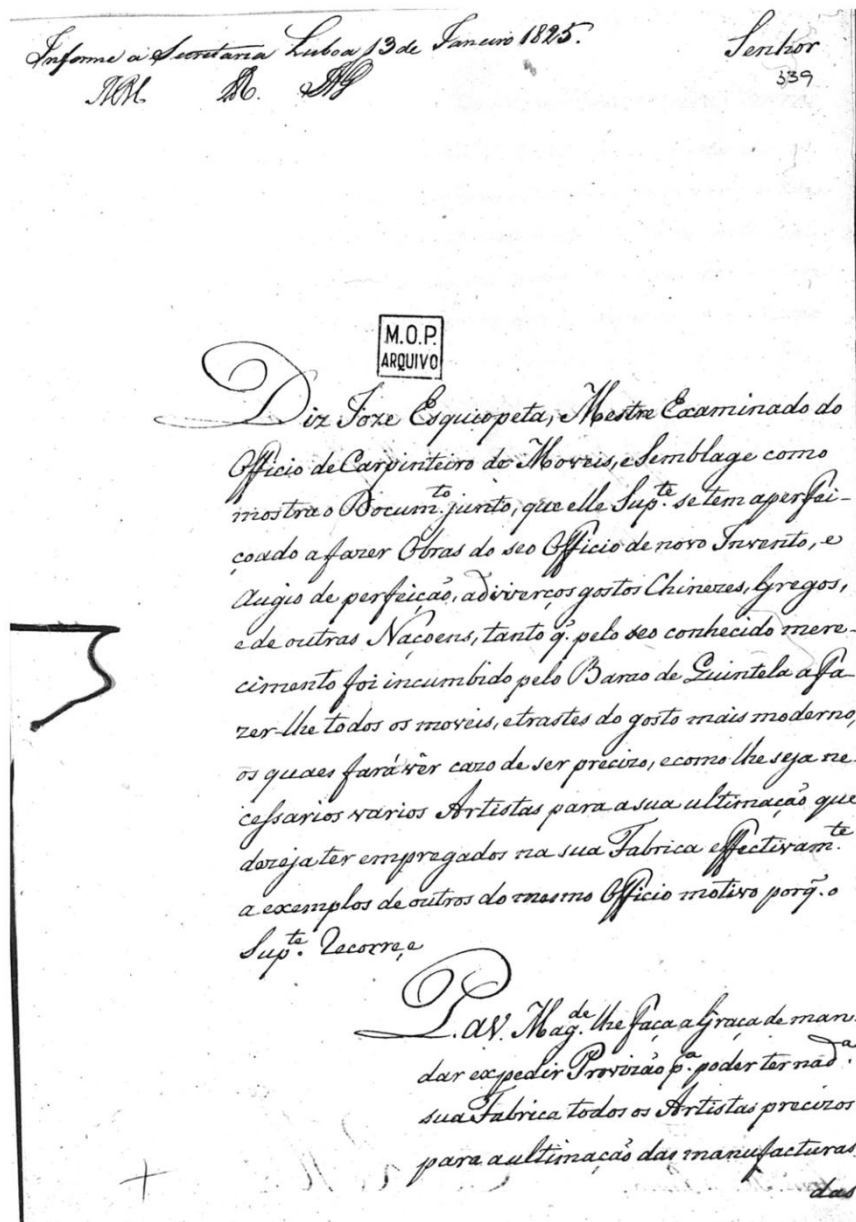 Informe a Secretaria Lisboa 13 de Janeiro 1825.
Senhor
339
M.O.P.
ARQUIVO
Diz Joze Esquiopeta, Mestre Examinado do
Officio de Carpinteiro de Moveis, e Semblage como
mostra o Docum.to junto, que elle Sup.te se tem aperfei-
çoado a fazer Obras do seo Officio de novo Invento, e
Augio de perfeição, a diverços gostos Chinezes, Gregos,
e de outras Naçoens, tanto q.' pelo seo conhecido mere-
cimento foi incumbido pelo Barao de Quintela a fa-
zer-lhe todos os moveis, e trastes do gosto mais moderno,
os quaes fará vêr cazo de ser precizo, e como lhe seja ne-
cessarios varios Artistas para a sua ultimação que
dezeja ter empregados na sua Fabrica effectivam.te
a exemplos de outros do mesmo Officio motivo porq.' o
Sup.te Recorre, e
P. a V. Mag.de lhe faça a Graça de man-
dar expedir Provizão p.a poder ter na d.a
sua Fabrica todos os Artistas precizos
para a ultimação das manufacturas
das